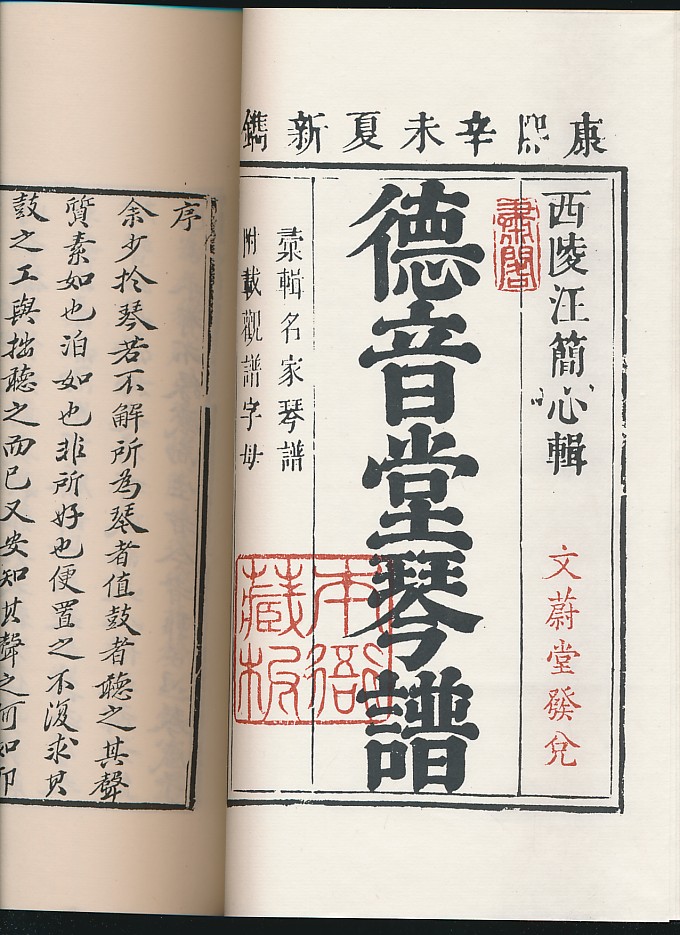 康熙辛未夏新鐫
西陵汪簡心輯
文蔚堂發兌
德音堂琴譜
彙輯名家琴譜
附載觀譜字母
本衙
藏板
序
余少於琴若不解所為琴者值鼓者聽之其聲
質素如也泊如也非所好也便置之不復求其
鼓之工與拙聽之而已又安知其聲之可如